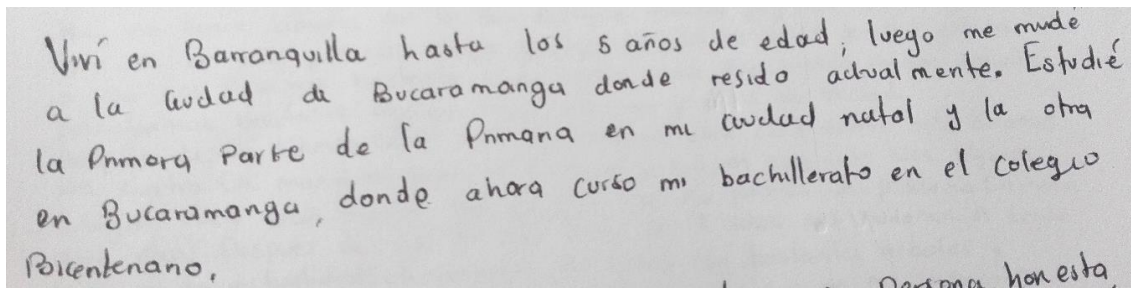 Viví en Barranquilla hasta los 5 años de edad, luego me mudé
a la ciudad de Bucaramanga donde resido actualmente. Estudié
la Primera Parte de la Primaria en mi ciudad natal y la otra
en Bucaramanga, donde ahora curso mi bachillerato en el colegio
Bicentenario.
Persona honesta